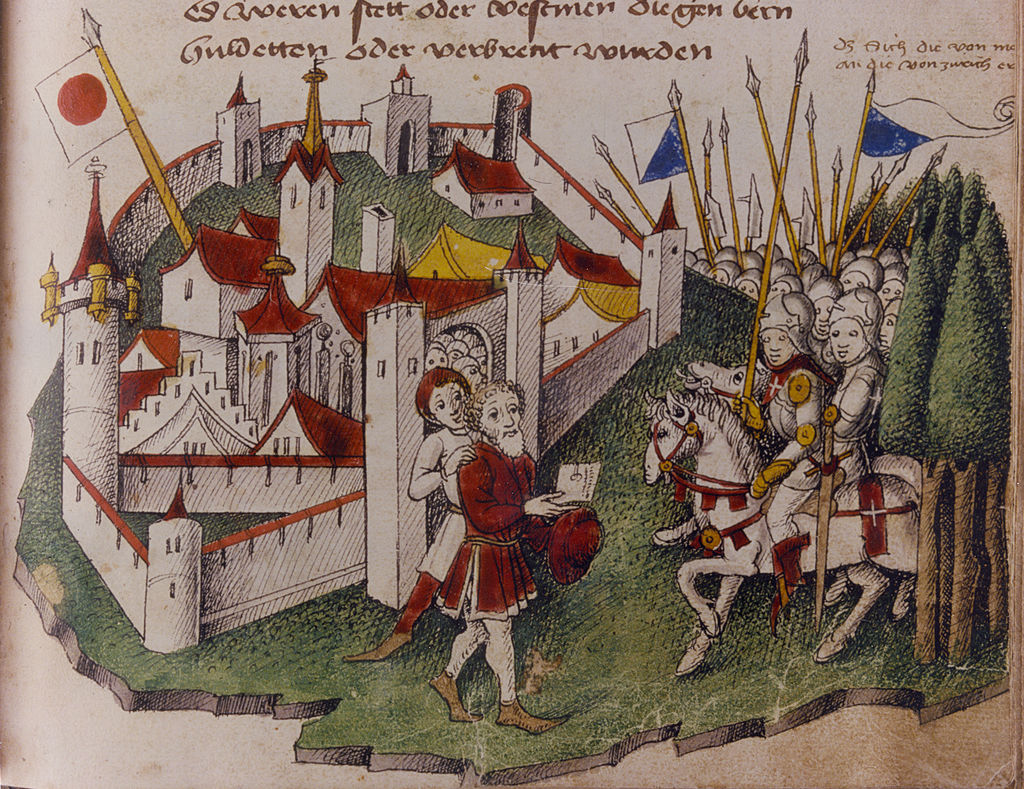 es weren stett oder vestinen die gen bern
huldetten oder verbrent wurden
dz sich die von
an die von zurich er